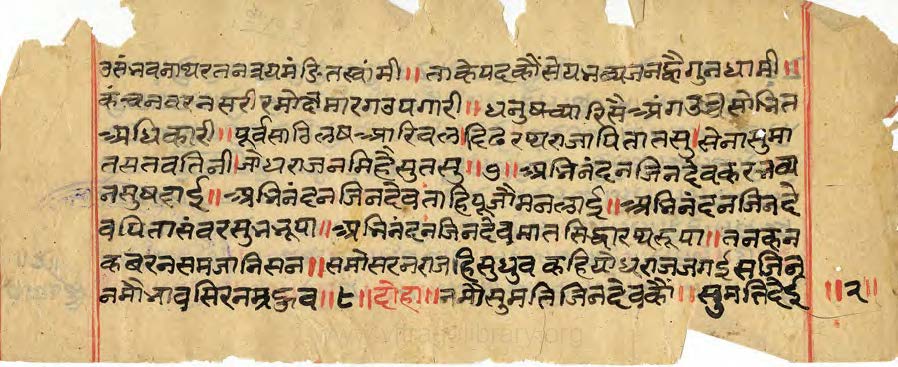 उसंभवनाथरतनत्रयमंडितस्वामी॥ताकेपदकौंसेयभव्यजनह्वैगुनधामी॥
कंचनवरनसरीरमोषमारगउपगारी॥धनुषच्यारिसैअंगउच्चसोभित
अधिकारी॥पूर्वसाठिलषआरिवलहिदिढरथराजापितातसु।सेनासुमा
तसतवतिनीजोधराजनमिहैसुतसु॥७॥अभिनंदनजिनदेवकरभव्य
नसुषदाई॥अभिनंदनजिनदेवताहिपूजौमनलाई॥अभिनंदनजिनदे
वपितासंवरसुभभूपा॥अभिनंदनजिनदेवमातसिद्धारथरूपा॥तनकन
कबरनसमजानिसन॥समोसरनराजहिसुधुवकहियोधराजजगईसजिन
नमौभावसिरनम्रहुव॥८॥दोहा॥नमौसुमतिजिनदेवकौं॥सुमतिदेई ॥२॥
www.vitragvani.org